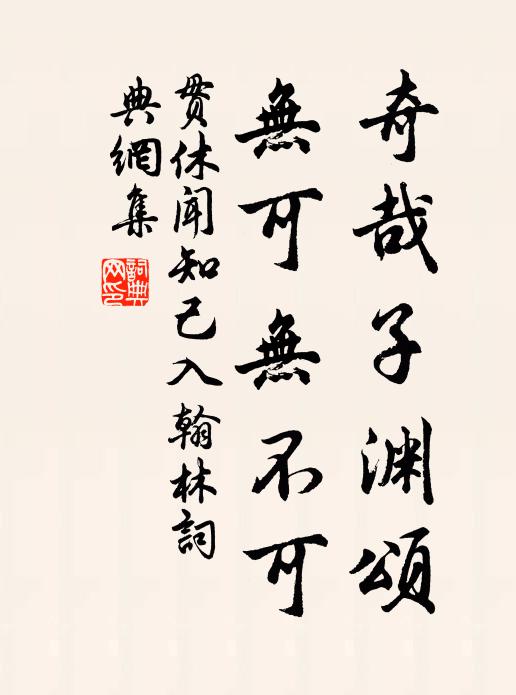 奇哉子渊頌
無可無不可
貫休聞知己入翰林詞
典網集
詞典網印